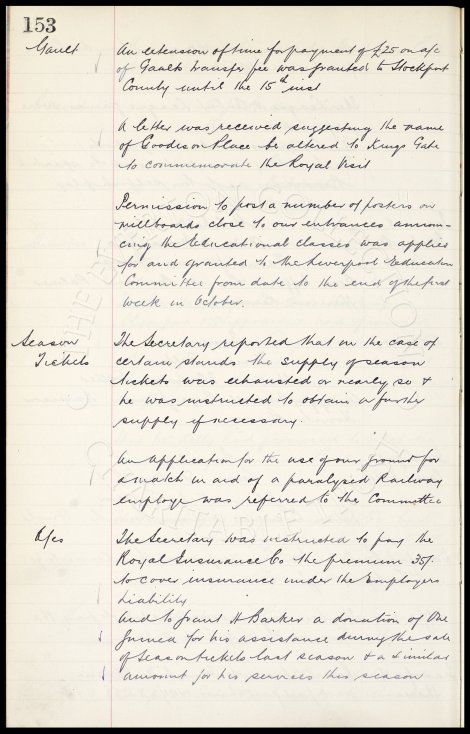 153
Gault An extension of time for payment of £25 on a/c
of Gaults transfer fee was granted to Stockport
County until the 15th inst
A letter was received suggesting the name
of Goodison Place be altered to Kings Gate
to commemorate the Royal Visit
Permission to post a number of posters on
millboards close to our entrances announ-
cing the Educational classes was applied
for and granted to the Liverpool Education
Committee from date to the end of the first
week in October.
Season The Secretary reported that in the case of
Tickets certain stands the supply of season
tickets was exhausted or nearly so &
he was instructed to obtain a further
supply if necessary.
An application for the use of our ground for
a match in aid of a paralysed Railway
employe was referred to the Committee
A/cs The Secretary was instructed to pay the
Royal Insurance Co the premium 35/-
to cover insurance under the Employers
Liability
and to grant H Barker a donation of One
Guinea for his assistance during the sale
of Season tickets last season & a similar
amount for his services this season